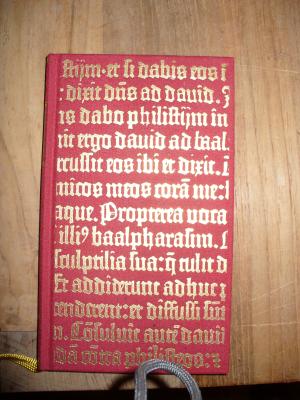 stijm·et si dabis eos i
: dixit dn̄s ad dauid. 
is dabo philistijm in
it ergo dauid ad baal
rcussit eos ibi et dixit.
micos meos corā me:
aque. Propterea voca
illi⁹ baalpharasim.
sculptilia sua: q̄ tulit d
Et addiderunt adhuc
enderent: et diffusi sūt
n. Cōsuluit autē daui
dā cōtra philisteos: